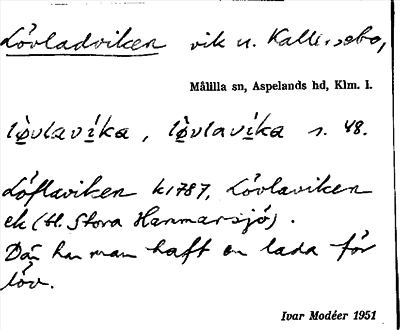 Lövladviken vik u. Kallersebo,
Målilla sn, Aspelands hd, Klm. l.
lo̲vlavíka, lo̲vlavíka s. 48.
Löflaviken k 1787, Lövlaviken
ek (tl. Stora Hammarsjö).
Där har man haft en lada för
löv.
Ivar Modéer 1951